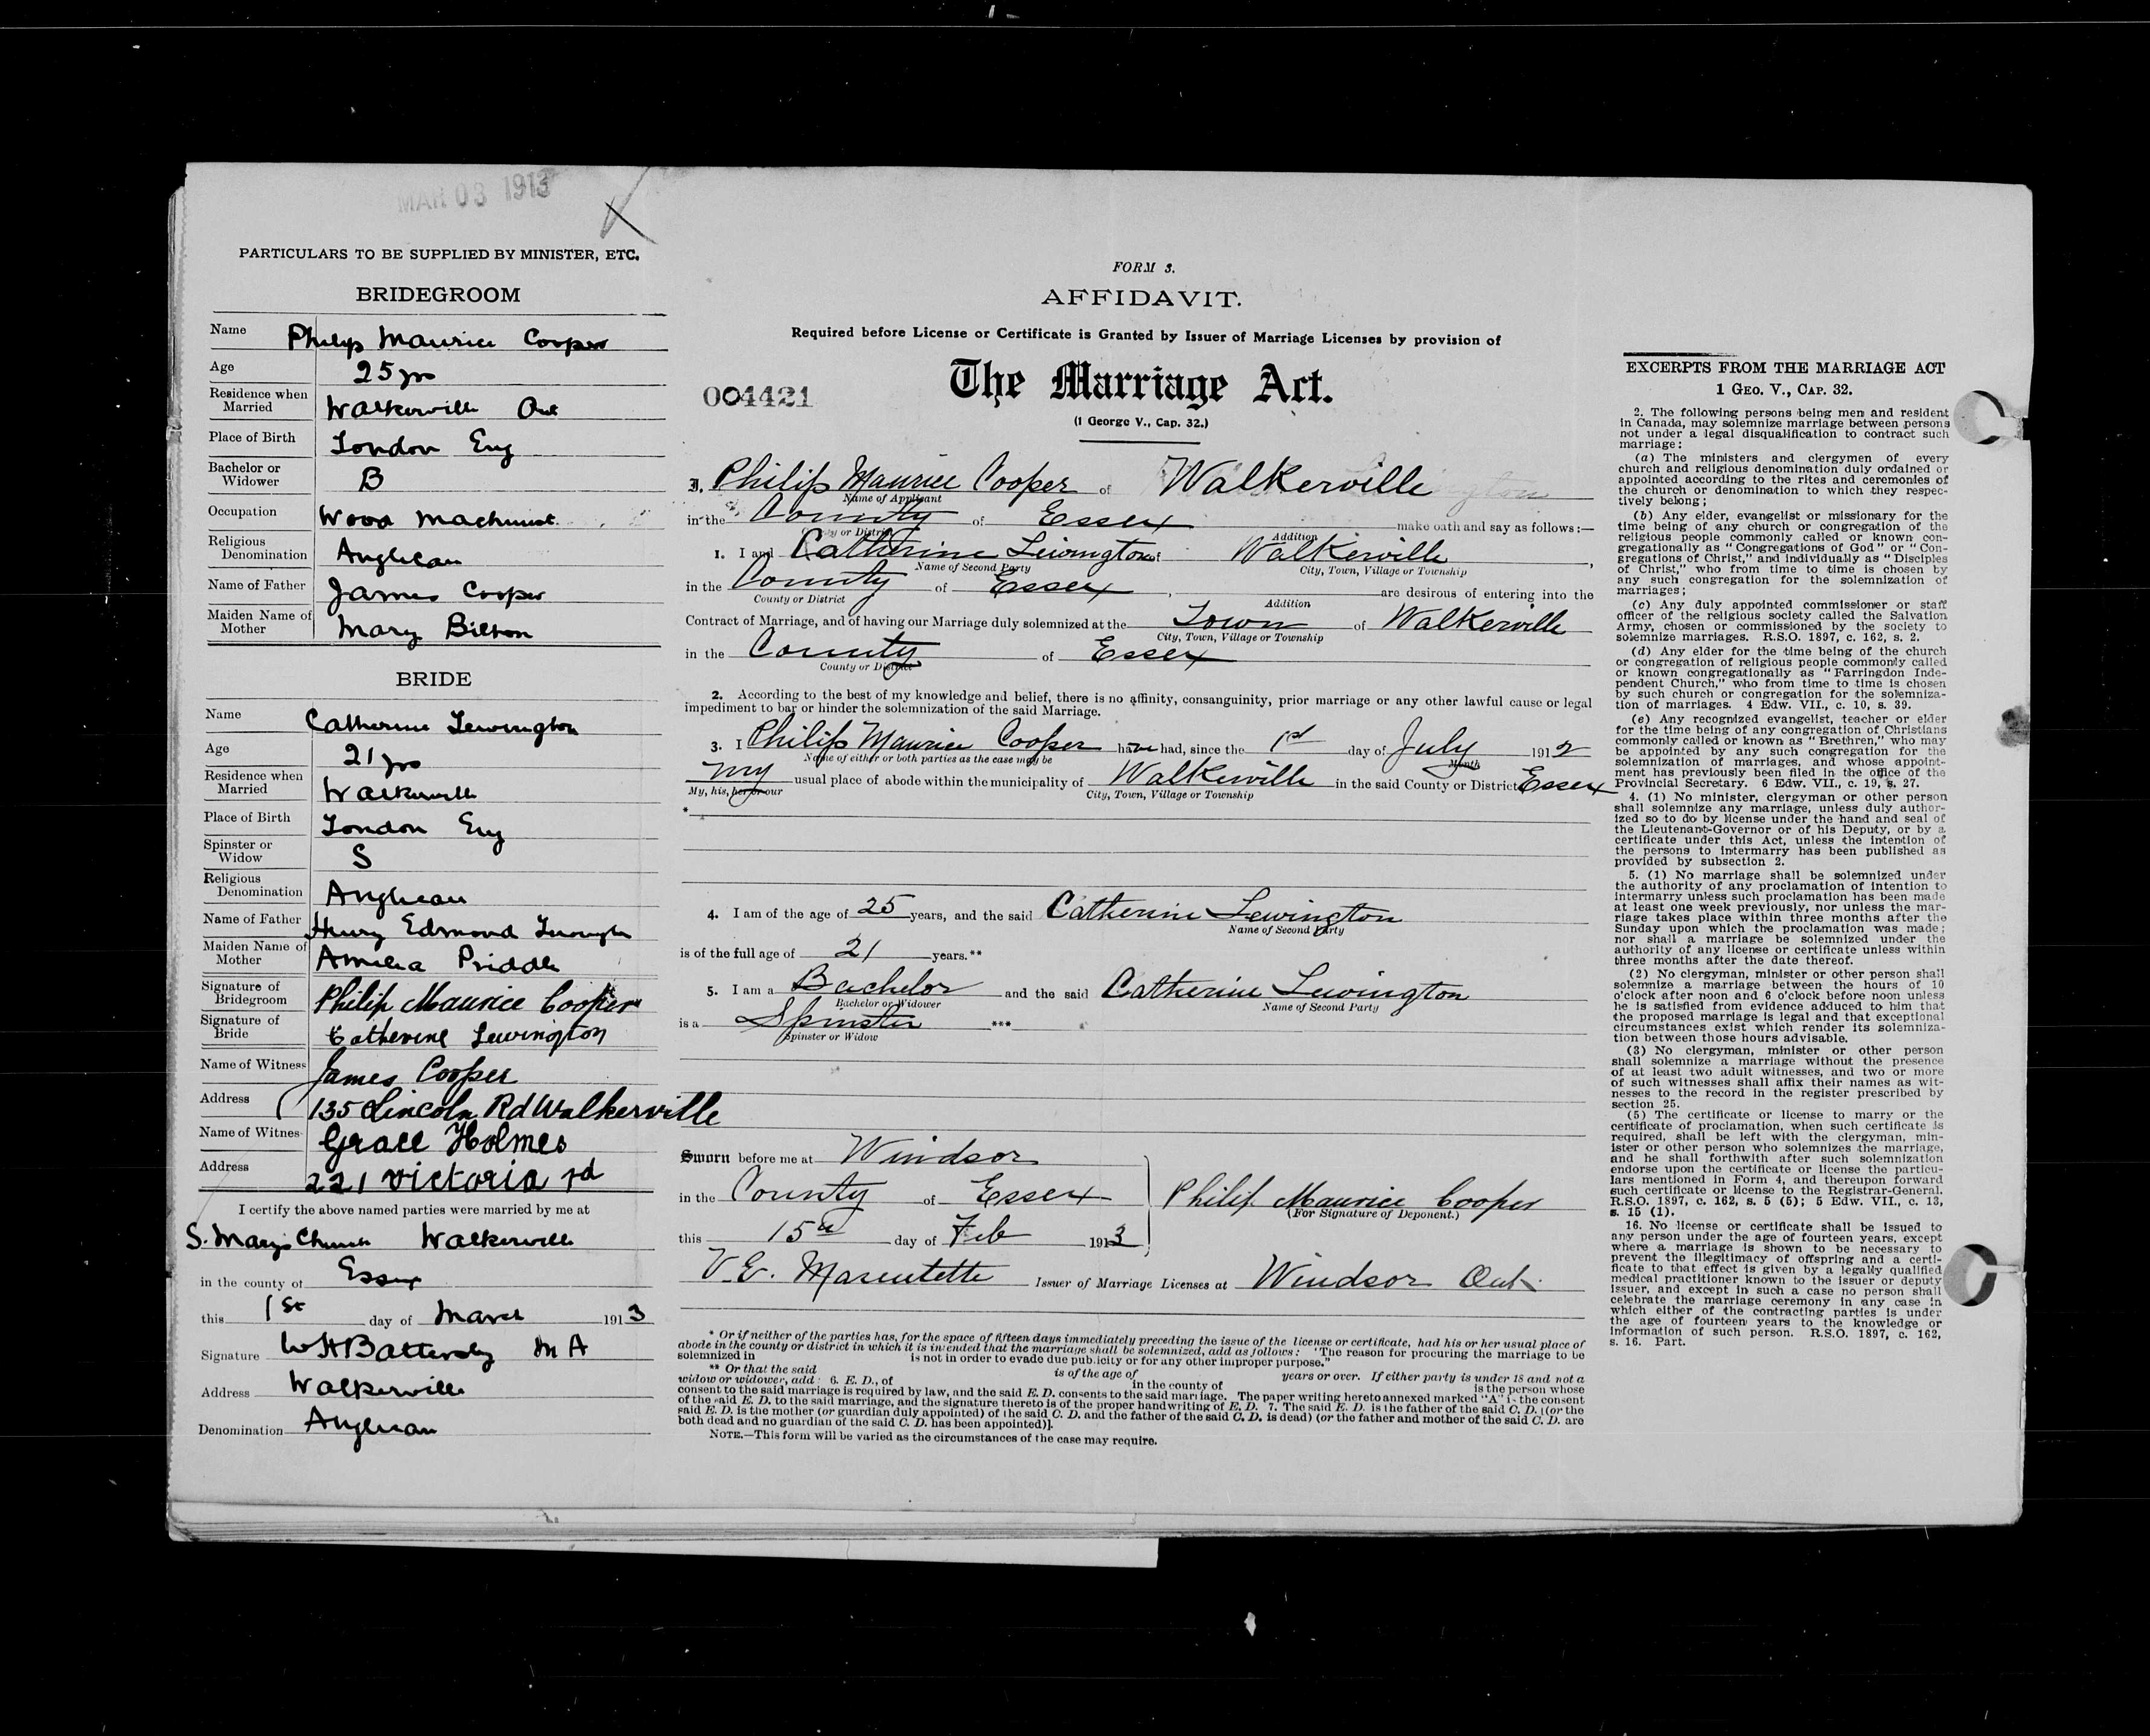 MAR 03 1913
PARTICULARS TO BE SUPPLIED BY MINISTER, ETC.
BRIDEGROOM
Name Philip Maurice Cooper
Age 25 yrs
Residence when Married Walkerville Ont
Place of Birth London Eng
Bachelor or Widower B
Occupation Wood Machinist
Religious Denomination Anglican
Name of Father James Cooper
Maiden Name of Mother Mary Bilton
BRIDE
Name Catherine Lewington
Age 21 yrs
Residence when Married Walkerville
Place of Birth London Eng
Spinster or Widow S
Religious Denomination Anglican
Name of Father Henry Edmond Lewington
Maiden Name of Mother Amelia Priddle
Signature of Bridegroom Philip Maurice Cooper
Signature of Bride Catherine Lewington
Name of Witness James Cooper
Address 135 Lincoln Rd Walkerville
Name of Witnes Grace Holmes
Address 221 Victoria rd
I certify the above named parties were married by me at
S. Marys Church Walkerville
in the county of Essex
this 1st day of March 1913
Signature W H Battersby M A
Address Walkerville
Denomination Anglican
FORM 3.
AFFIDAVIT.
Required before License or Certificate is Granted by Issuer of Marriage Licenses by provision of
The Marriage Act.
004421
(1 George V., Cap. 32.)
I, Philip Maurice Cooper of Walkerville
Name of Applicant
in the County of Essex make oath and say as follows:—
or District Addition
1. I and Catherine Lewington of Walkerville,
Name of Second Party City, Town, Village or Township
in the County of Essex, are desirous of entering into the
County or District Addition
Contract of Marriage, and of having our Marriage duly solemnized at the Town of Walkerville
City, Town, Village or Township
in the County of Essex
County or District
2. According to the best of my knowledge and belief, there is no affinity, consanguinity, prior marriage or any other lawful cause or legal
impediment to bar or hinder the solemnization of the said Marriage.
3. I Philip Maurice Cooper have had, since the 1st day of July 1912
Name of either or both parties as the case may be Month
my usual place of abode within the municipality of Walkerville in the said County or District Essex
My, his, her or our City, Town, Village or Township
*
4. I am of the age of 25 years, and the said Catherine Lewington
Name of Second Party
is of the full age of 21 years.**
5. I am a Bachelor and the said Catherine Lewington
Bachelor or Widower Name of Second Party
is a Spinster ***
Spinster or Widow
Sworn before me at Windsor
in the County of Essex
Philip Maurice Cooper
(For Signature of Deponent.)
this 15th day of Feb 1913
V. E. Marentette Issuer of Marriage Licenses at Windsor Ont.
* Or if neither of the parties has, for the space of fifteen days immediately preceding the issue of the license or certificate, had his or her usual place of
abode in the county or district in which it is intended that the marriage shall be solemnized, add as follows: "The reason for procuring the marriage to be
solemnized in is not in order to evade due publicity or for any other improper purpose."
** Or that the said is of the age of years or over. If either party is under 18 and not a
widow or widower, add: 6. E. D., of in the county of is the person whose
consent to the said marriage is required by law, and the said E. D. consents to the said marriage. The paper writing hereto annexed marked "A" is the consent
of the said E. D. to the said marriage, and the signature thereto is of the proper handwriting of E. D. 7. The said E. D. is the father of the said C. D. [(or the
said E. D. is the mother (or guardian duly appointed) of the said C. D. and the father of the said C. D. is dead) (or the father and mother of the said C. D. are
both dead and no guardian of the said C. D. has been appointed)].
NOTE.—This form will be varied as the circumstances of the case may require.
EXCERPTS FROM THE MARRIAGE ACT
1 GEO. V., CAP. 32.
2. The following persons being men and resident
in Canada, may solemnize marriage between persons
not under a legal disqualification to contract such
marriage:
(a) The ministers and clergymen of every
church and religious denomination duly ordained or
appointed according to the rites and ceremonies of
the church or denomination to which they respec-
tively belong;
(b) Any elder, evangelist or missionary for the
time being of any church or congregation of the
religious people commonly called or known con-
gregationally as "Congregations of God" or "Con-
gregations of Christ," and individually as "Disciples
of Christ," who from time to time is chosen by
any such congregation for the solemnization of
marriages;
(c) Any duly appointed commissioner or staff
officer of the religious society called the Salvation
Army, chosen or commissioned by the society to
solemnize marriages. R.S.O. 1897, c. 162, s. 2.
(d) Any elder for the time being of the church
or congregation of religious people commonly called
or known congregationally as "Farringdon Inde-
pendent Church," who from time to time is chosen
by such church or congregation for the solemniza-
tion of marriages. 4 Edw. VII., c. 10, s. 39.
(e) Any recognized evangelist, teacher or elder
for the time being of any congregation of Christians
commonly called or known as "Brethren," who may
be appointed by any such congregation for the
solemnization of marriages, and whose appoint-
ment has previously been filed in the office of the
Provincial Secretary. 6 Edw. VII., c. 19, s. 27.
4. (1) No minister, clergyman or other person
shall solemnize any marriage, unless duly author-
ized so to do by license under the hand and seal of
the Lieutenant-Governor or of his Deputy, or by a
certificate under this Act, unless the intention of
the persons to intermarry has been published as
provided by subsection 2.
5. (1) No marriage shall be solemnized under
the authority of any proclamation of intention to
intermarry unless such proclamation has been made
at least one week previously, nor unless the mar-
riage takes place within three months after the
Sunday upon which the proclamation was made;
nor shall a marriage be solemnized under the
authority of any license or certificate unless within
three months after the date thereof.
(2) No clergyman, minister or other person shall
solemnize a marriage between the hours of 10
o'clock after noon and 6 o'clock before noon unless
he is satisfied from evidence adduced to him that
the proposed marriage is legal and that exceptional
circumstances exist which render its solemniza-
tion between those hours advisable.
(3) No clergyman, minister or other person
shall solemnize a marriage without the presence
of at least two adult witnesses, and two or more
of such witnesses shall affix their names as wit-
nesses to the record in the register prescribed by
section 25.
(5) The certificate or license to marry or the
certificate of proclamation, when such certificate is
required, shall be left with the clergyman, min-
ister or other person who solemnizes the marriage,
and he shall forthwith after such solemnization
endorse upon the certificate or license the particu-
lars mentioned in Form 4, and thereupon forward
such certificate or license to the Registrar-General.
R.S.O. 1897, c. 162, s. 5 (5); 5 Edw. VII., c. 13,
s. 15 (1).
16. No license or certificate shall be issued to
any person under the age of fourteen years, except
where a marriage is shown to be necessary to
prevent the illegitimacy of offspring and a certi-
ficate to that effect is given by a legally qualified
medical practitioner known to the issuer or deputy
issuer, and except in such a case no person shall
celebrate the marriage ceremony in any case in
which either of the contracting parties is under
the age of fourteen years to the knowledge or
information of such person. R.S.O. 1897, c. 162,
s. 16. Part.